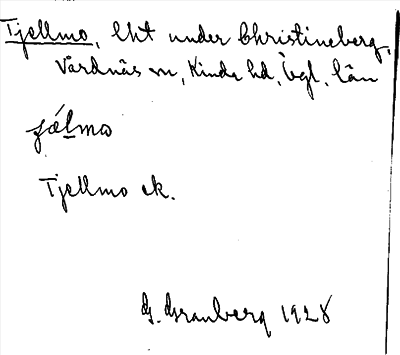 Tjellmo, lht under Christineberg,
Vårdnäs sn, Kinda hd, Ögl. län
Tjellmo ek.
G. Granberg 1928